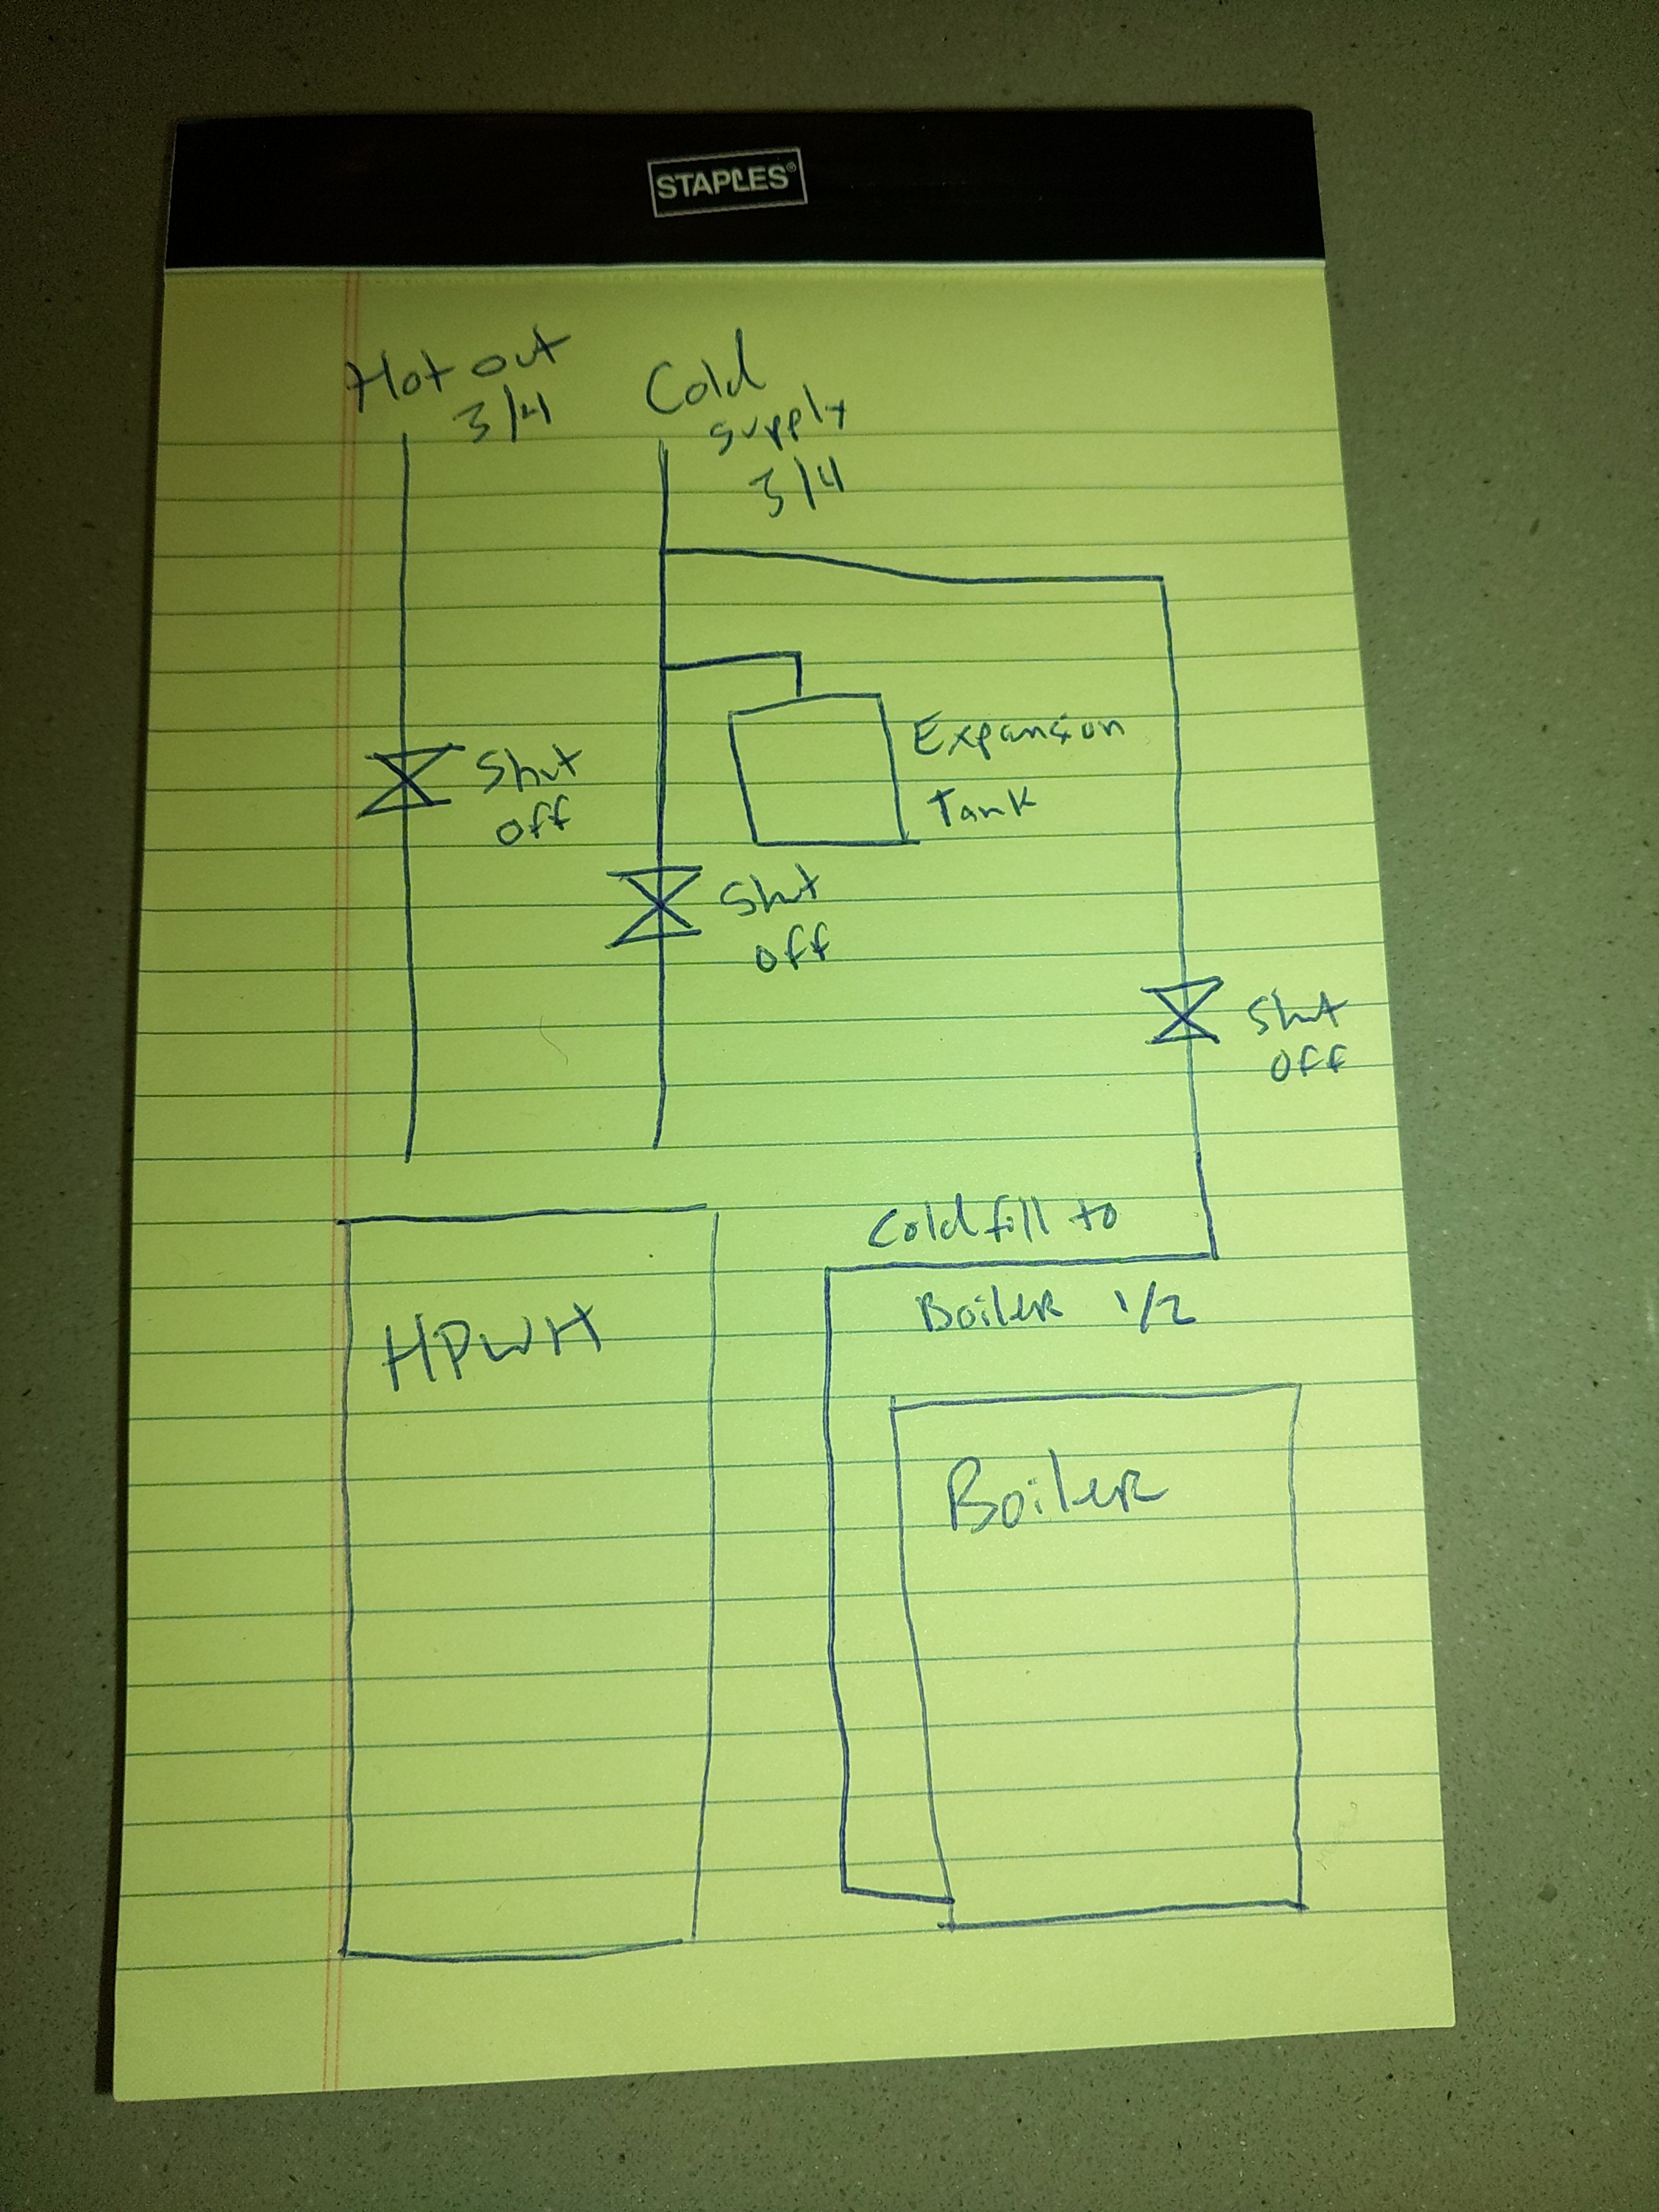 STAPLES®
Hot out
3/4
Cold
supply
3/4
Expansion
Tank
Shut
off
Shut
off
Shut
off
Cold fill to
Boiler 1/2
HPWH
Boiler